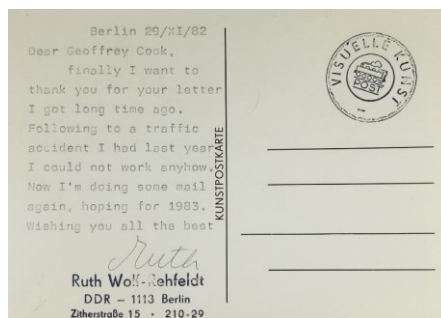 Berlin 29/XI/82
Dear Geoffrey Cook,
finally I want to
thank you for your letter
I got long time ago.
Following to a traffic
accident I had last year
I could not work anyhow.
Now I'm doing some mail
again, hoping for 1983.
Wishing you all the best
Ruth
Ruth Wolf-Rehfeldt
DDR – 1113 Berlin
Zitherstraße 15 · 210-29
KUNSTPOSTKARTE
VISUELLE KUNST
POST